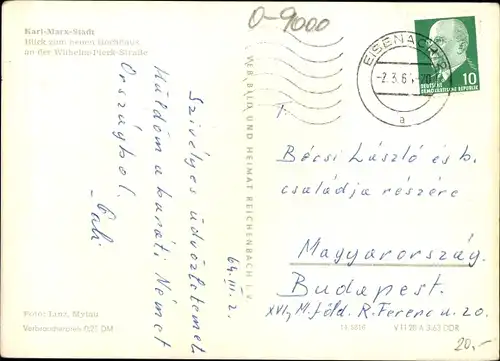 Karl-Marx-Stadt
Blick zum neuen Hochhaus
an der Wilhelm-Pieck-Straße
0-9000
EISENACH
-2.3.6
-20
a
DEUTSCHE
DEMOKRATISCHE REPUBLIK
10
VEB BILD UND HEIMAT REICHENBACH i. V.
64. III. 2.
Szivélyes üdvözletemet
küldöm a baráti Német
Országból.
Pali
T.
Bécsi László és b.
családja részére
Magyarország.
Budapest.
XVI, M.föld. R. Ferenc u. 20.
Foto: Lenz, Mylau
Verbraucherpreis 0,21 DM
V 11 20 A 3/63 DDR
20,-